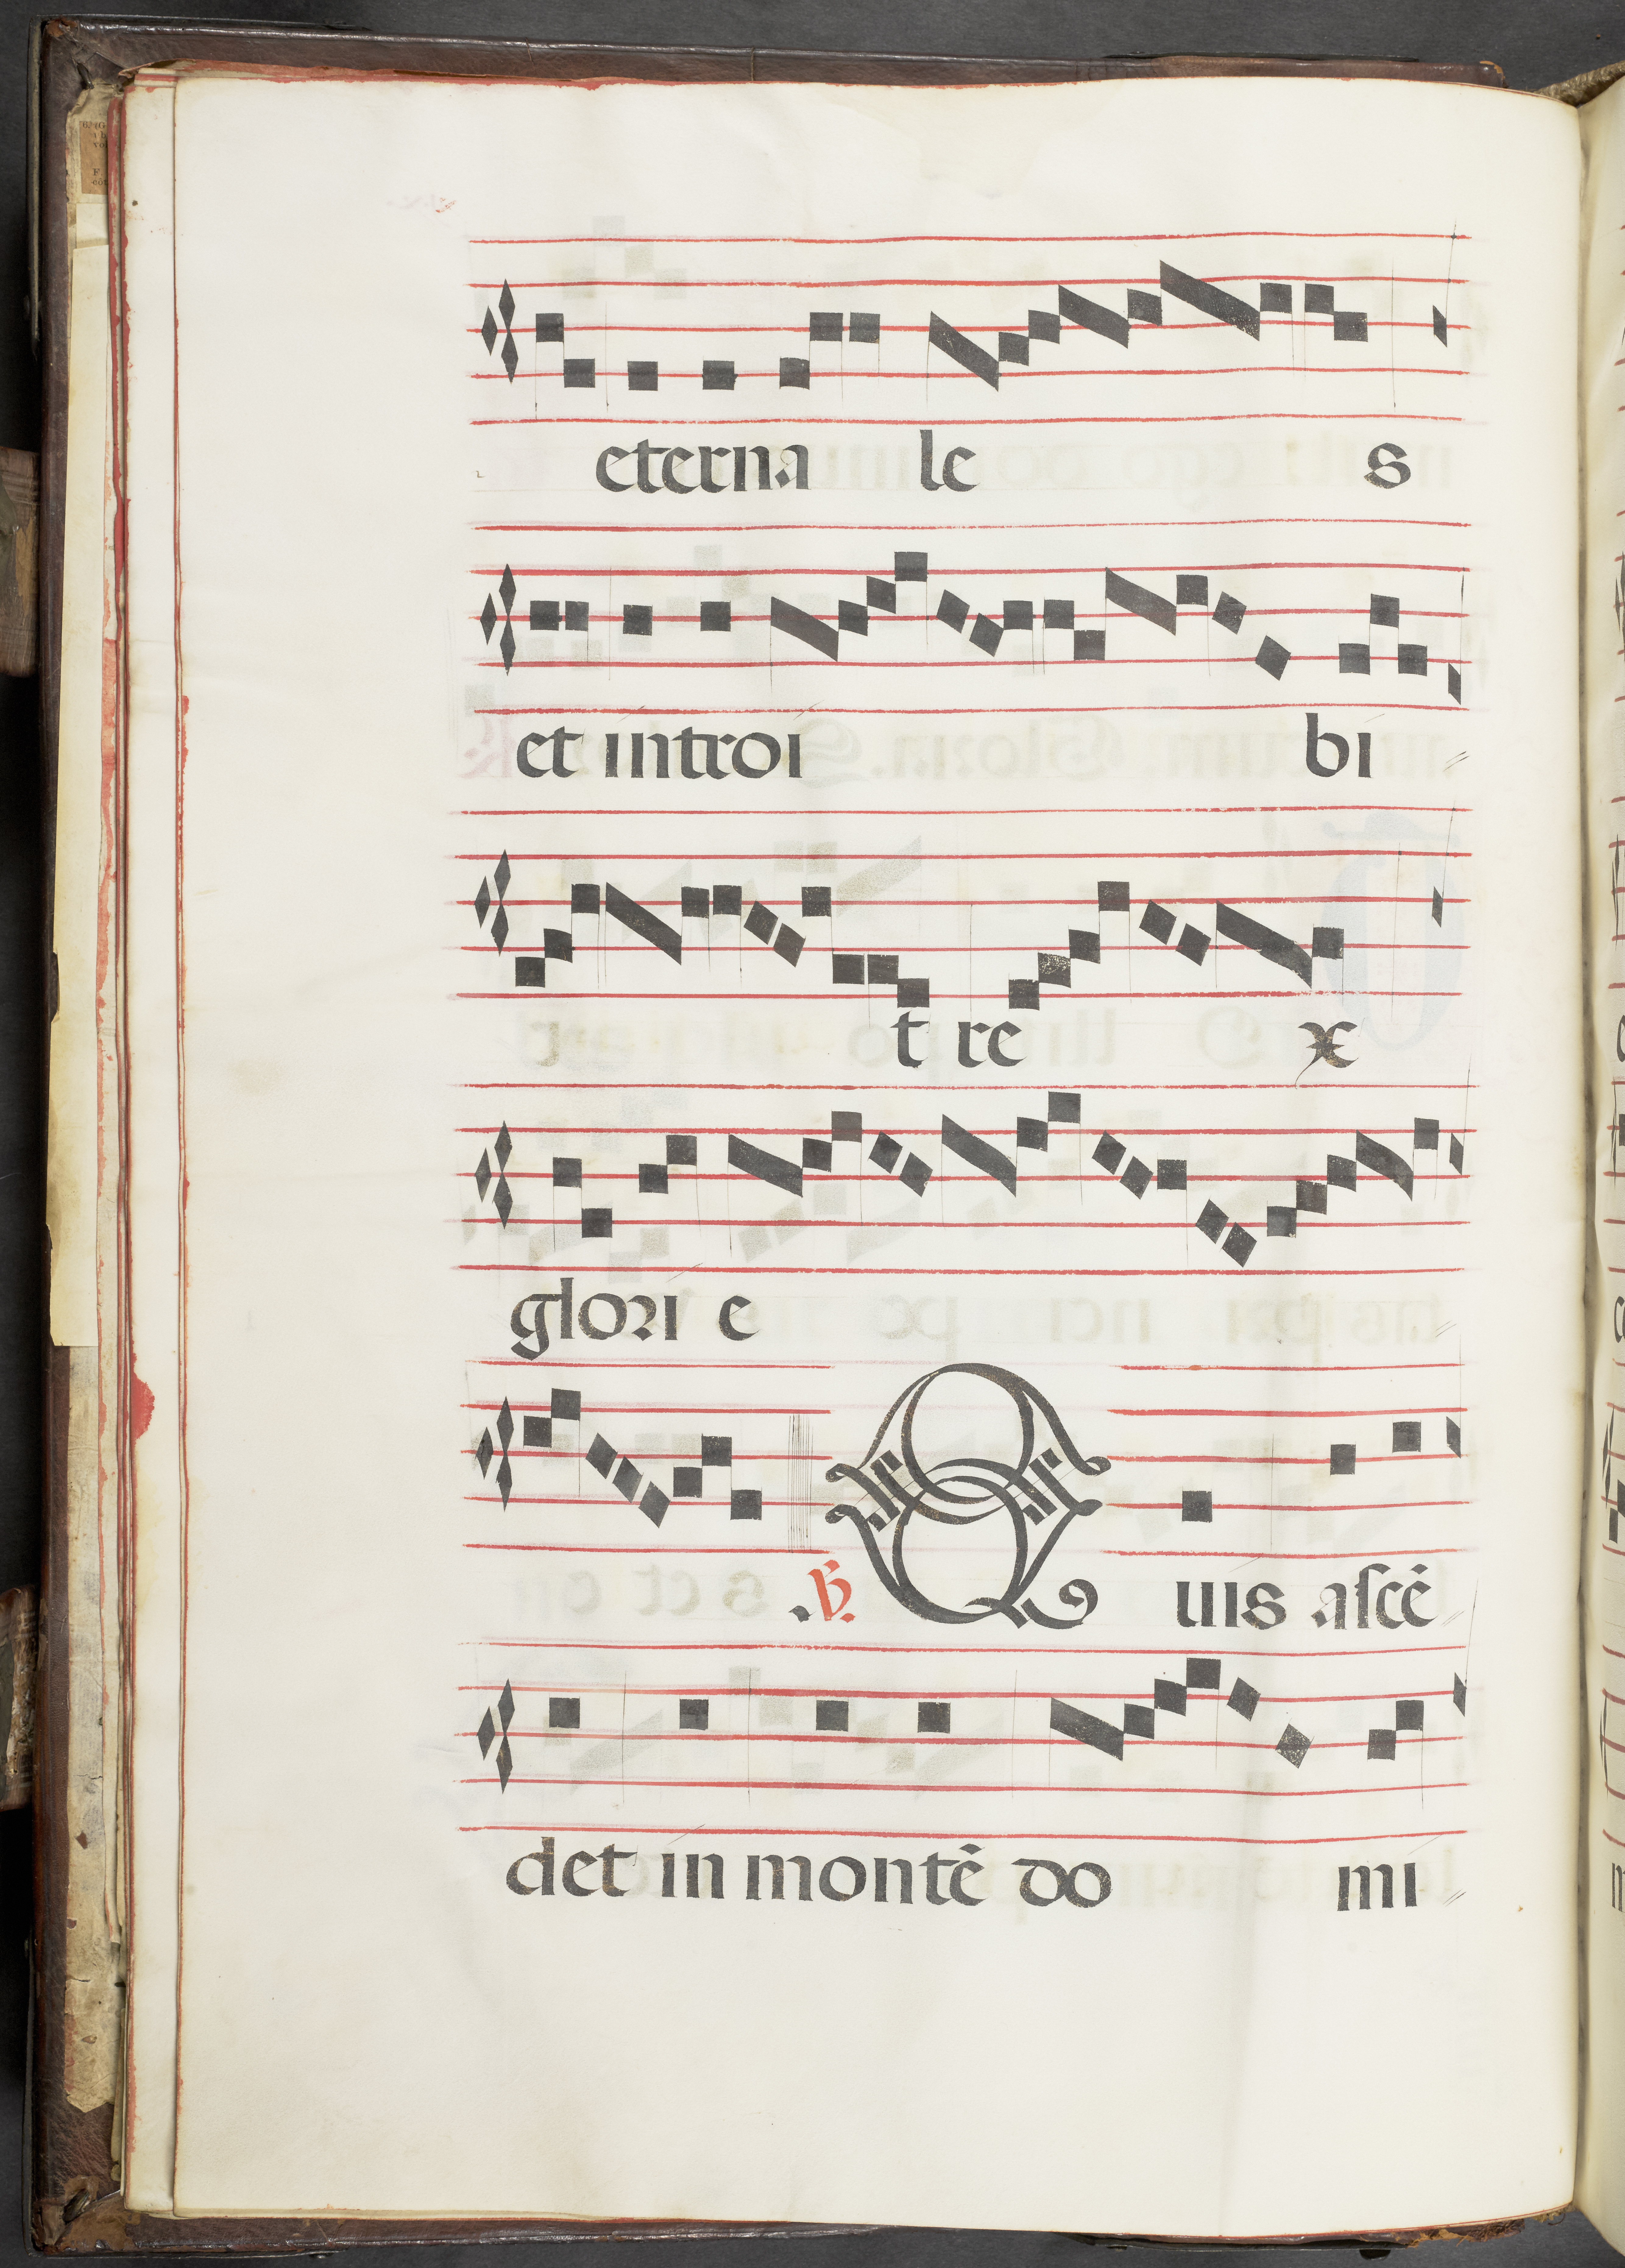 eterna le s
et introi bi
t re x
glori e
.℣. Quis ascē
det in montē do mi